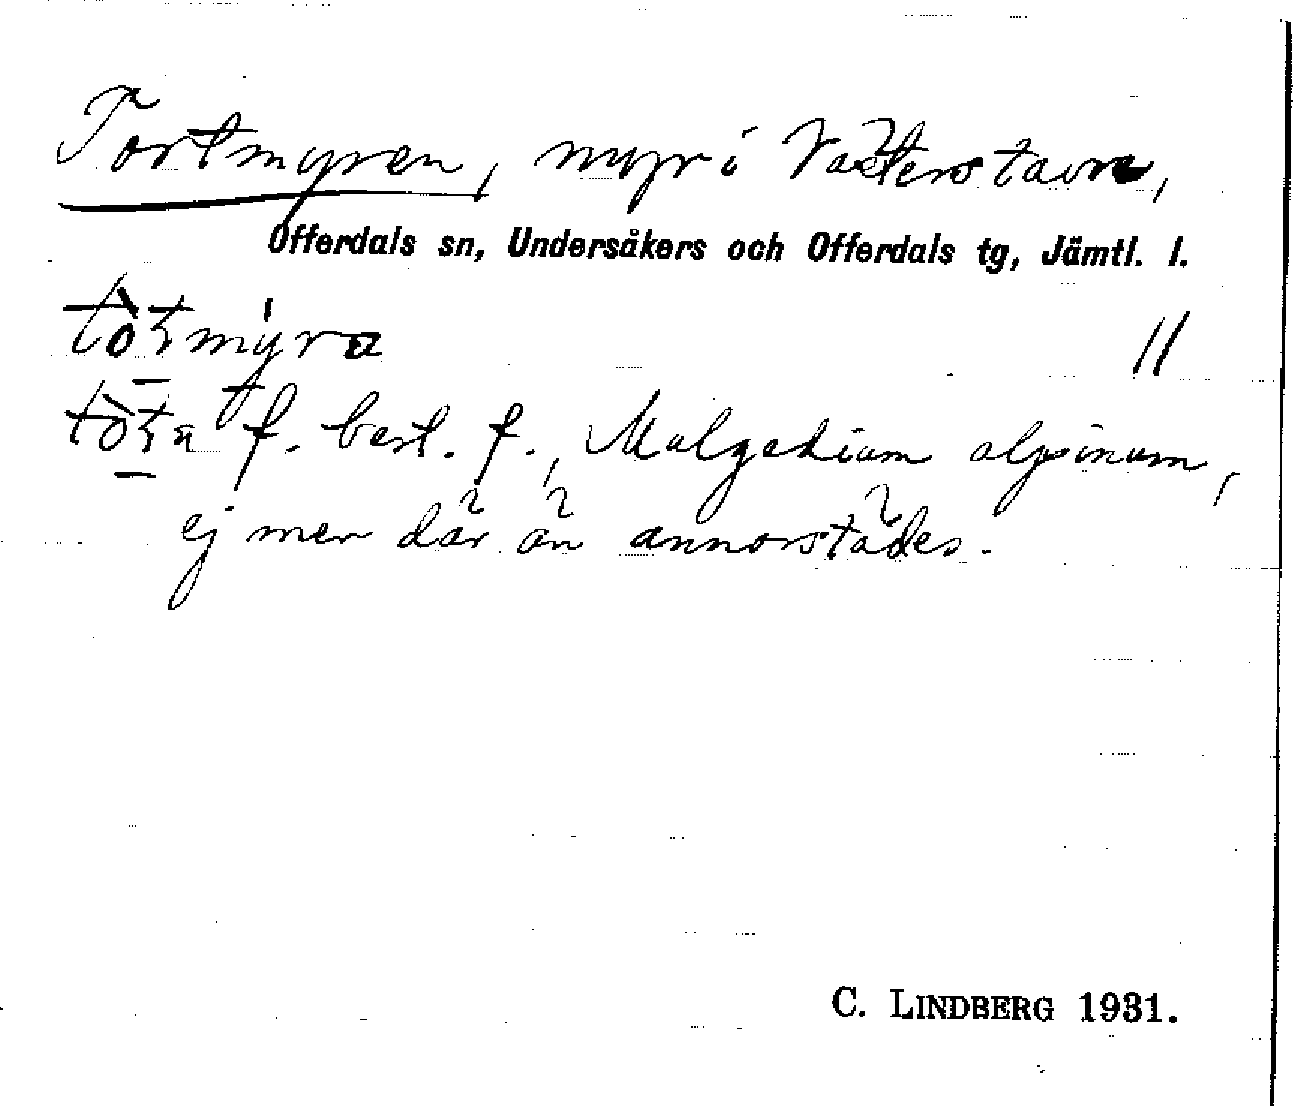 Tortmyren, myr i Västerstavre,
Offerdals sn, Undersåkers och Offerdals tg, Jämtl. l.
tòtmýra 11
tòta f. best. f., Mulgedium alpinum,
ej mer där än annorstädes.
C. LINDBERG 1931.